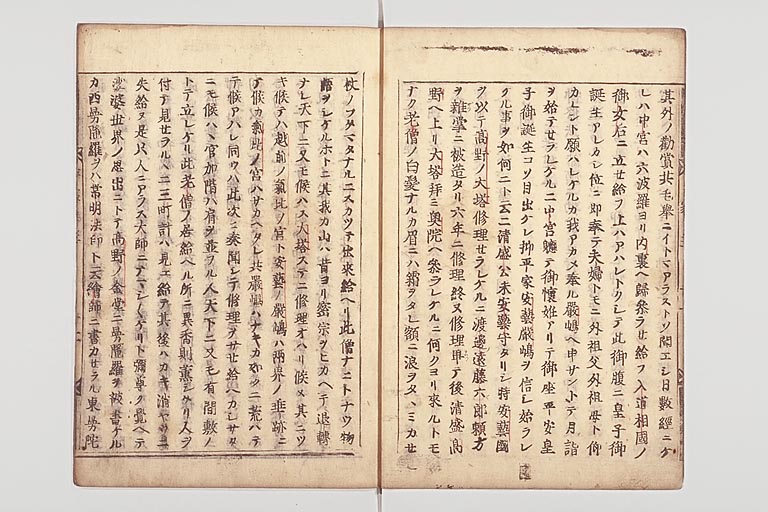 其外ノ勸賞共毛擧ニイトマアラストソ聞エシ日數經ニケ
レハ中宮ハ六波羅ヨリ内裏ヘ歸參ラセ給フ入道相國ノ
御女后ニ立セ給フ上ハアハレトクシテ此御腹ニ皇子御
誕生アレカシ位ニ即奉テ夫婦トモニ外祖父外祖母ト仰
カレント願ハレケルカ我アカメ奉ル嚴嶋ヘ申サントテ月詣
ヲ始テセラレケルニ中宮軈テ御懷姙アリテ御産平安皇
子御誕生コソ目出ケレ抑平家安藝嚴嶋ヲ信シ始ラレ
ケル事ヲ如何ニト云ニ清盛公未安藝守タリシ時安藝國
ヲ以テ高野ノ大塔修理セラレケルニ渡邊遠藤六郎頼方
ヲ雜掌ニ被造タリ六年ニ修理終ヌ修理畢テ後清盛高
野ヘ上リ大塔拜ミ奥院ヘ參ラレケルニ何クヨリ來ルトモ
ナク老僧ノ白髮ナルカ眉ニハ霜ヲタレ額ニ浪ヲタヽミカセ
杖ノフタマタナルニスカツテ出來給ヘリ此僧ナニトナウ物
語ヲシケルホトニ其我カ山ハ昔ヨリ密宗ヲヒカヘテ退轉
ナシ天下ニ又モ候ハス大塔ステニ修理オハリ候ヌ其ニツ
キ候テハ越前ノ氣比ノ宮ト安藝ノ嚴嶋ハ兩界ノ垂跡ニ
テ候カ氣比ノ宮ハサカヘタレ共嚴嶋ハナキカ如クニ荒ハテ
テ候アハレ同クハ此次ニ奏聞シテ修理ヲサセ給ヘカシサタ
ニモ候ハヽ官加階ハ肩ヲ並フル人天下ニ又モ有間敷ソ
トテ立レケリ此老僧ノ居給ヘル所ニ異香則薫シケリ人ヲ
付テ見セラルヘニ三町計ハ見エ給テ其後ハカキ消ヤウニ
失給ヌ是只人ニアラス大師ニテマシ〳〵ケリト彌尊ク覺ヘテ
沙婆世界ノ思出ニトテ高野ノ金堂ニ曼陀羅ヲ被書ケル
カ西曼陀羅ヲハ常明法印ト云繪師ニ書カセラル東曼陀